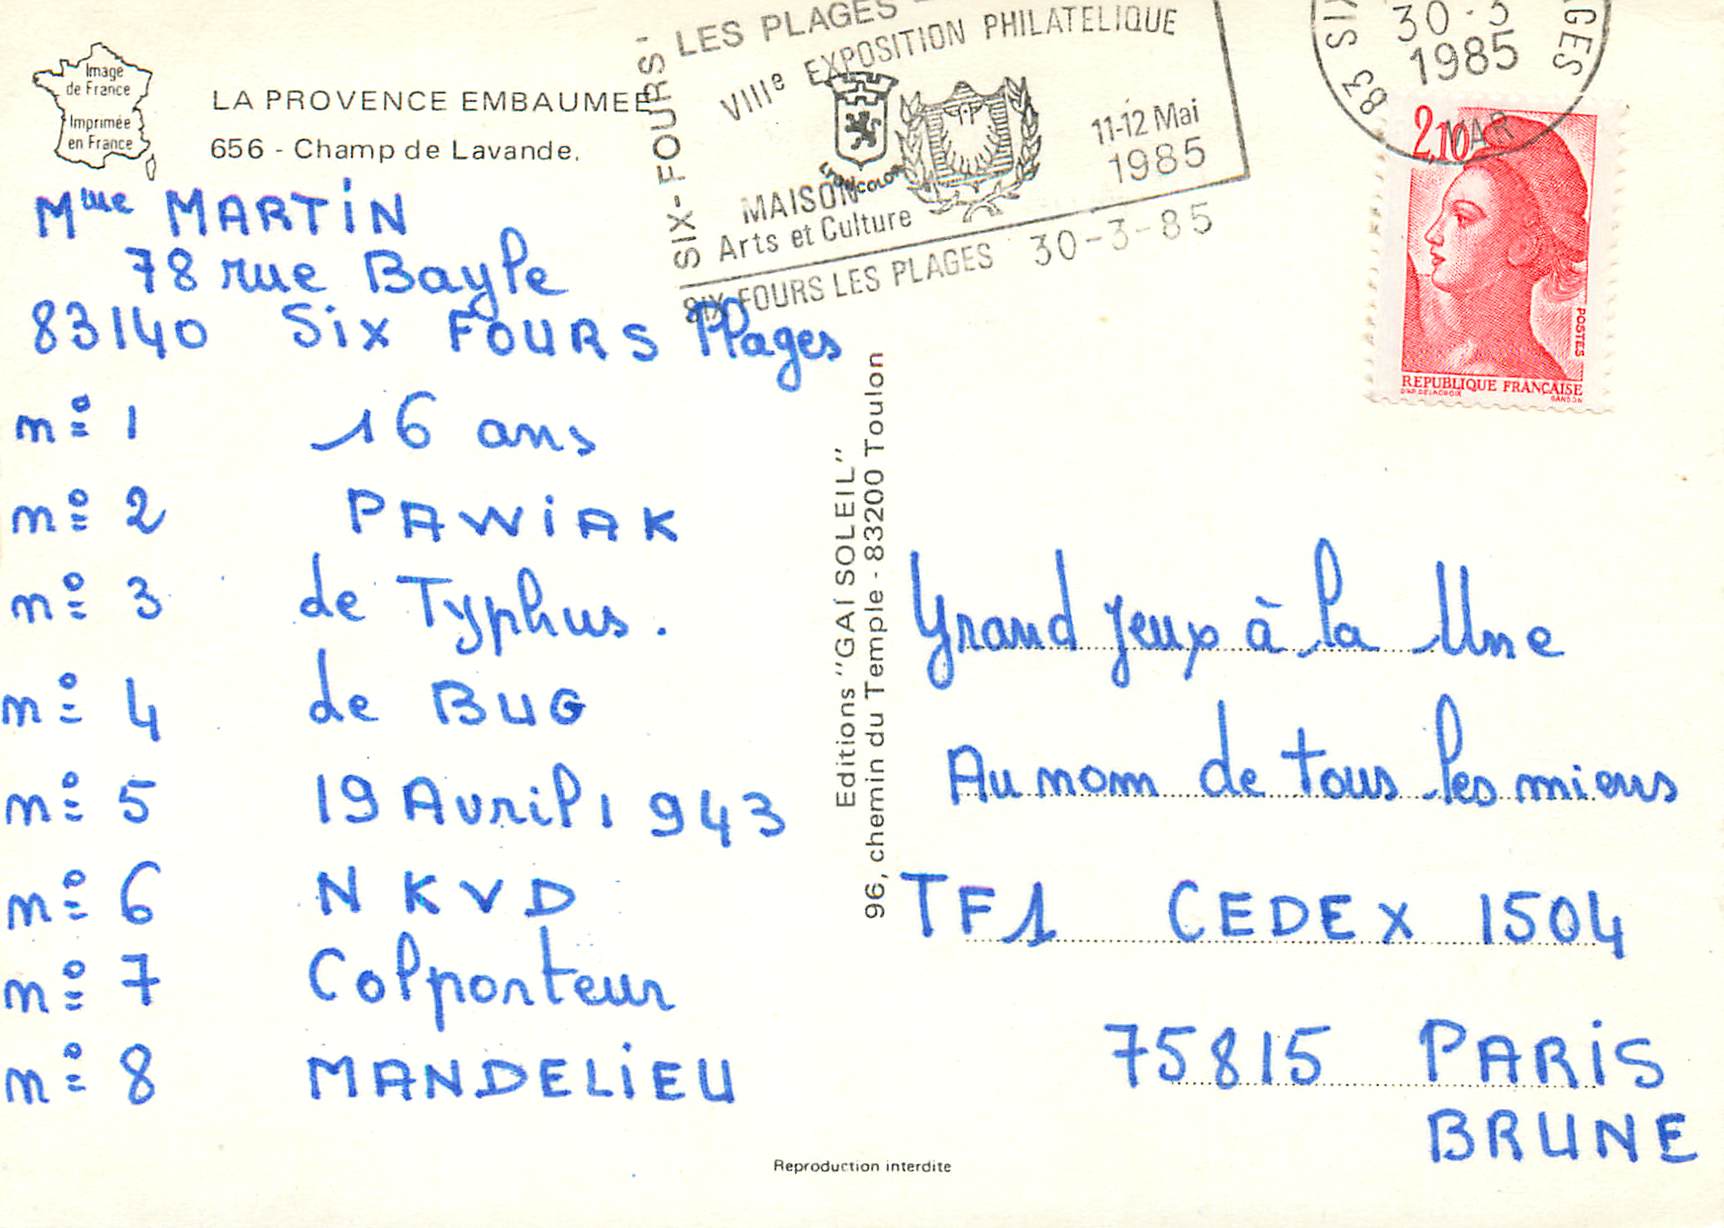 Image
de France
Imprimée
en France
LA PROVENCE EMBAUMEE
656 - Champ de Lavande.
Mme MARTIN
78 rue Bayle
83140 Six FOURS Plages
n° 1 16 ans
n° 2 PAWIAK
n° 3 de Typhus.
n° 4 de BUG
n° 5 19 Avril 1943
n° 6 NKVD
n° 7 Colporteur
n° 8 MANDELIEU
SIX-FOURS-
LES PLAGES
VIIIe EXPOSITION PHILATELIQUE
11-12 Mai
1985
MAISON
Arts et Culture
SIX FOURS LES PLAGES 30-3-85
LYONCOLOR
83 SIX
30-3
1985
VAR
2,10
POSTES
REPUBLIQUE FRANÇAISE
Editions "GAI SOLEIL"
96, chemin du Temple - 83200 Toulon
Grand Jeux à la Une
Au nom de tous les miens
TF1 CEDEX 1504
75815 PARIS
BRUNE
Reproduction interdite